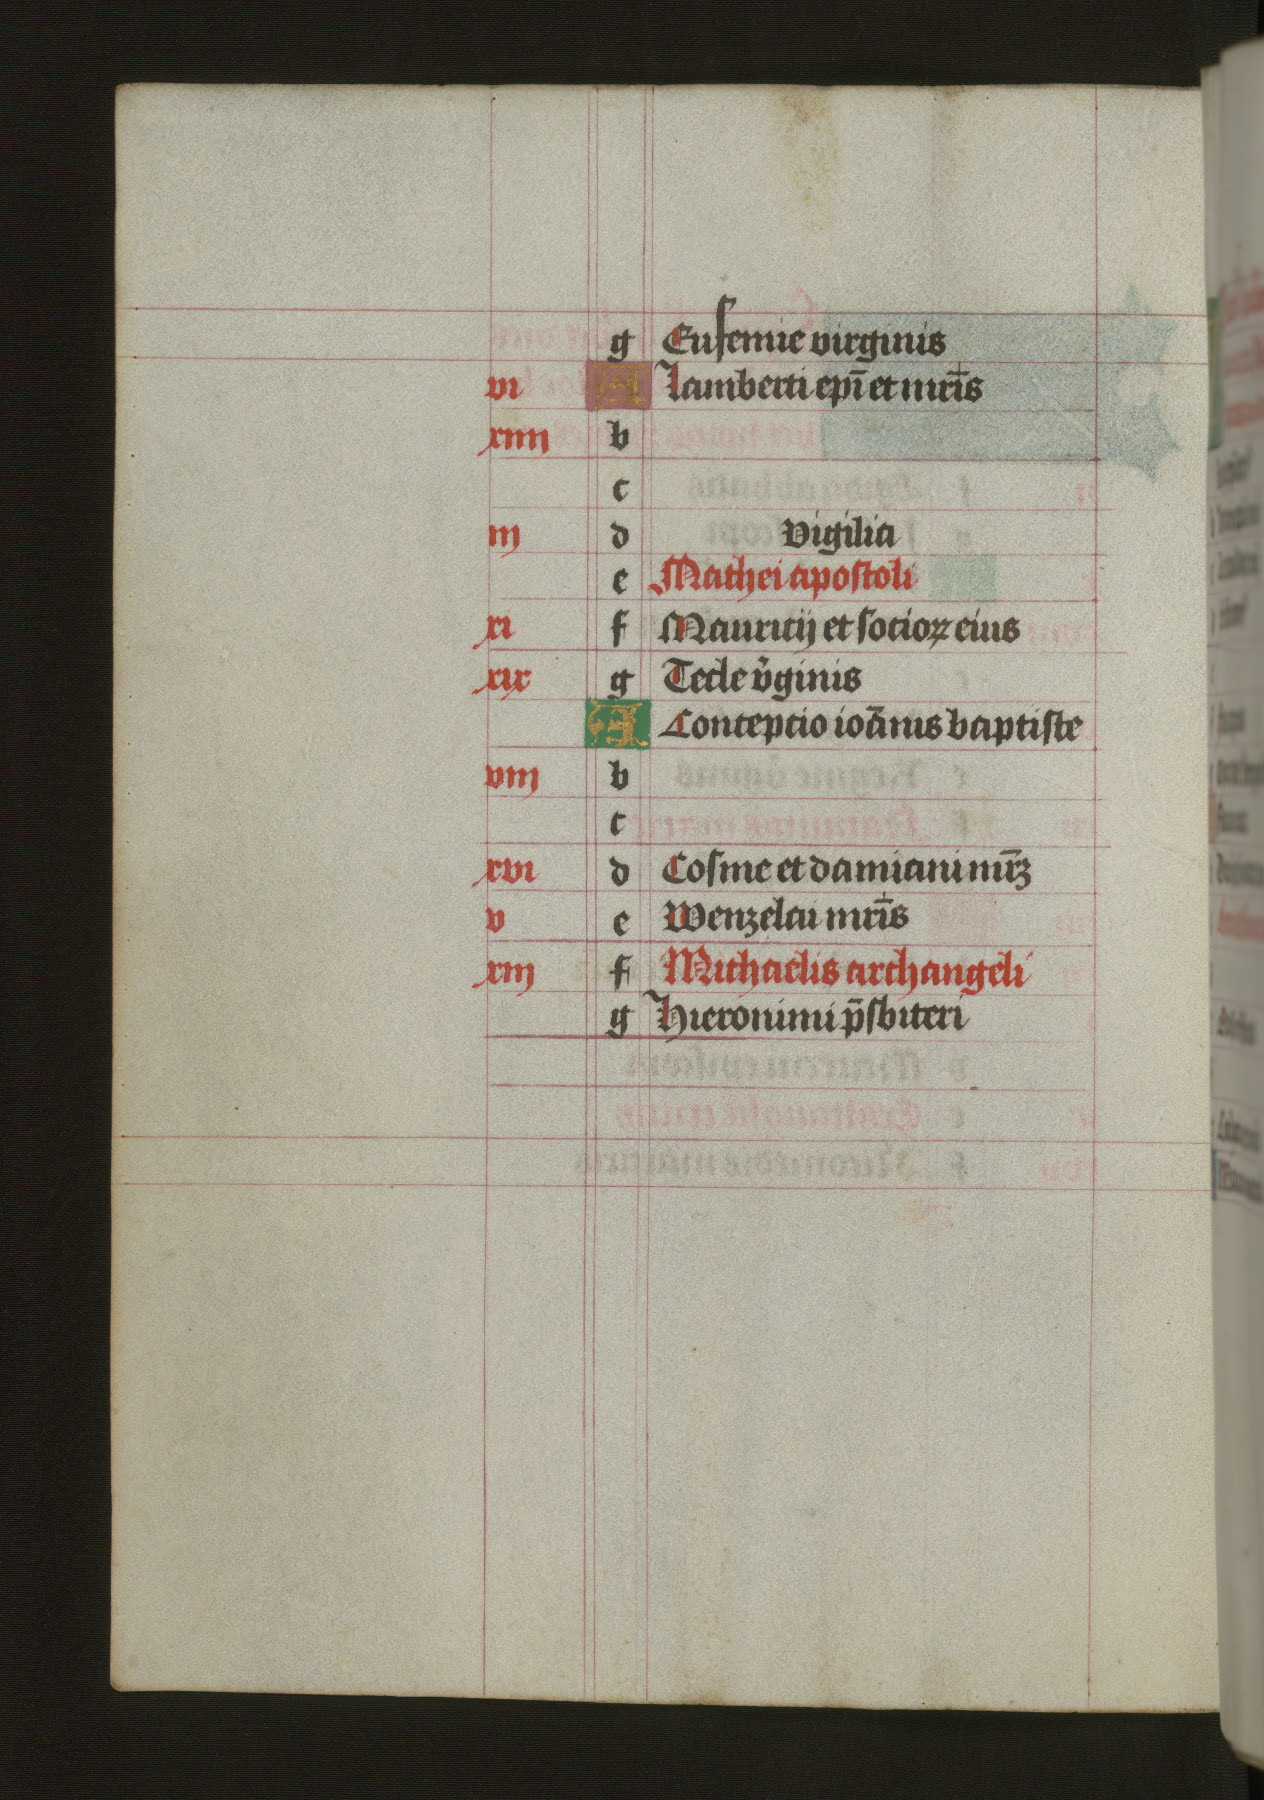 g Eufemie virginis
vi A Lamberti epī et mrīs
xiiij b
c
iij d Vigilia
e Mathei apostoli
xi f Mauritij et socioꝝ eius
xix g Tecle v̓ginis
A Conceptio ioānis baptiste
viij b
c
xvi d Cosme et damiani mr̄ꝝ
v e Wenzelai mrīs
xiij f Michaelis archangeli
g Hieronimi p̄sbiteri